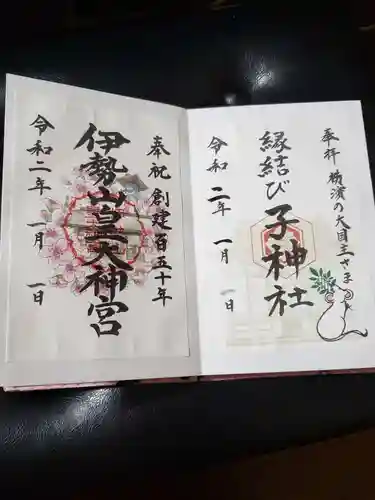 奉拝 横濱の大国主さま
縁結び 子神社
令和二年 一月 一日
奉祝 創建百五十年
伊勢山皇大神宮
令和二年 一月 一日